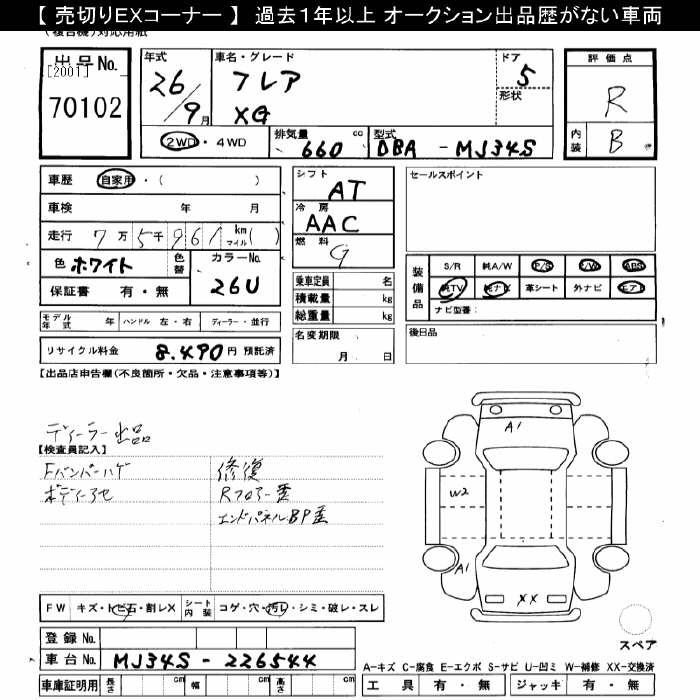 【 売切りEXコーナー 】 過去1年以上 オークション出品歴がない車両
(複合機)対応用紙
出品No. [2001] 70102
年式 26/9月
車名・グレード フレア XG
ドア 5
形状
評価点 R
内装 B
2WD・4WD
排気量 660 cc
型式 DBA - MJ34S
車歴 自家用・( )
車検 年 月
走行 7万5千961 km マイル( )
色 ホワイト 色替
カラーNo. 26U
保証書 有・無
シフト AT
冷房 AAC
燃料 G
乗車定員 名
積載量 kg
総重量 kg
セールスポイント
装備品
S/R 純A/W P/S P/W ABS
純TV 純ナビ 革シート 外ナビ エアB
ナビ型番:
モデル年式 年 ハンドル 左・右 ディーラー・並行
リサイクル料金 8,490円 預託済
名変期限 月 日
後日品
【出品店申告欄(不良箇所・欠品・注意事項等)】
ディーラー出品
【検査員記入】
Fバンパーハゲ 修復
ボディーアセ Rフロアー歪
エンドパネルBP歪
A1
W2
A1
XX
FW キズ・トビ石・割レX
シート内装 コゲ・穴・汚レ・シミ・破レ・スレ
登録No.
車台No. MJ34S-226544
スペア
A-キズ C-腐食 E-エクボ S-サビ U-凹ミ W-補修 XX-交換済
車庫証明用 長さ cm 幅 cm 高さ cm
工具 有・無 ジャッキ 有・無